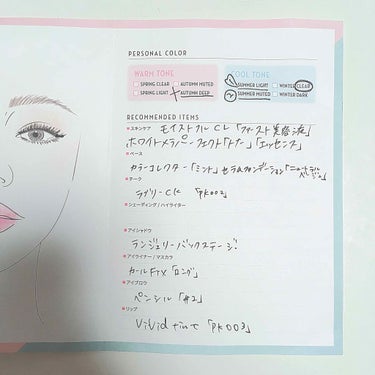 PERSONAL COLOR
WARM TONE
SPRING CLEAR AUTUMN MUTED
SPRING LIGHT AUTUMN DEEP
COOL TONE
① SUMMER LIGHT WINTER CLEAR
② SUMMER MUTED WINTER DARK
RECOMMENDED ITEMS
スキンケア モイストフルCL「ファースト美容液」
ホワイトメラノパーフェクト「トナー」「エッセンス」
ベース
カラーコレクター「ミント」セラムファンデーション「ニュートラルベージュ」
チーク
ラブリーCK 「PK002」
シェーディング / ハイライター
アイシャドウ
ランジェリーバックステージ!
アイライナー / マスカラ
カールFix「ロング」
アイブロウ
ペンシル「#2」
リップ
Vivid tint「PK003」